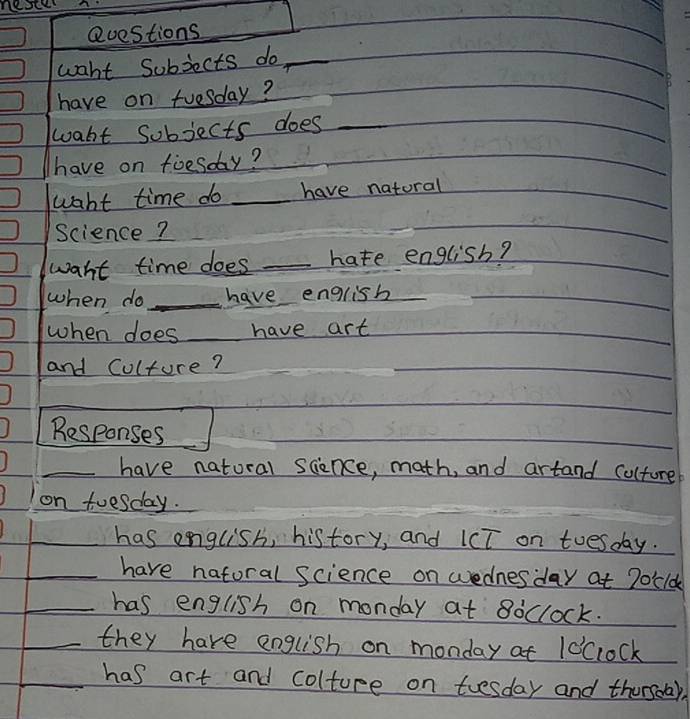 Questions
waht Subjects do ___
have on tuesday?
waht Subjects does ___
have on tuesday?
waht time do ___ have natural
Science?
waht time does ___ hate english?
when do ___ have english
when does ___ have art
and Culture?
Responses
___ have natural science, math, and artand culture
on tuesday.
___ has english, history, and ICT on tuesday.
___ have natural science on wednesday at 7oclck
___ has english on monday at 8óclock.
___ they have english on monday at 10'clock
___ has art and colture on tuesday and thursday.